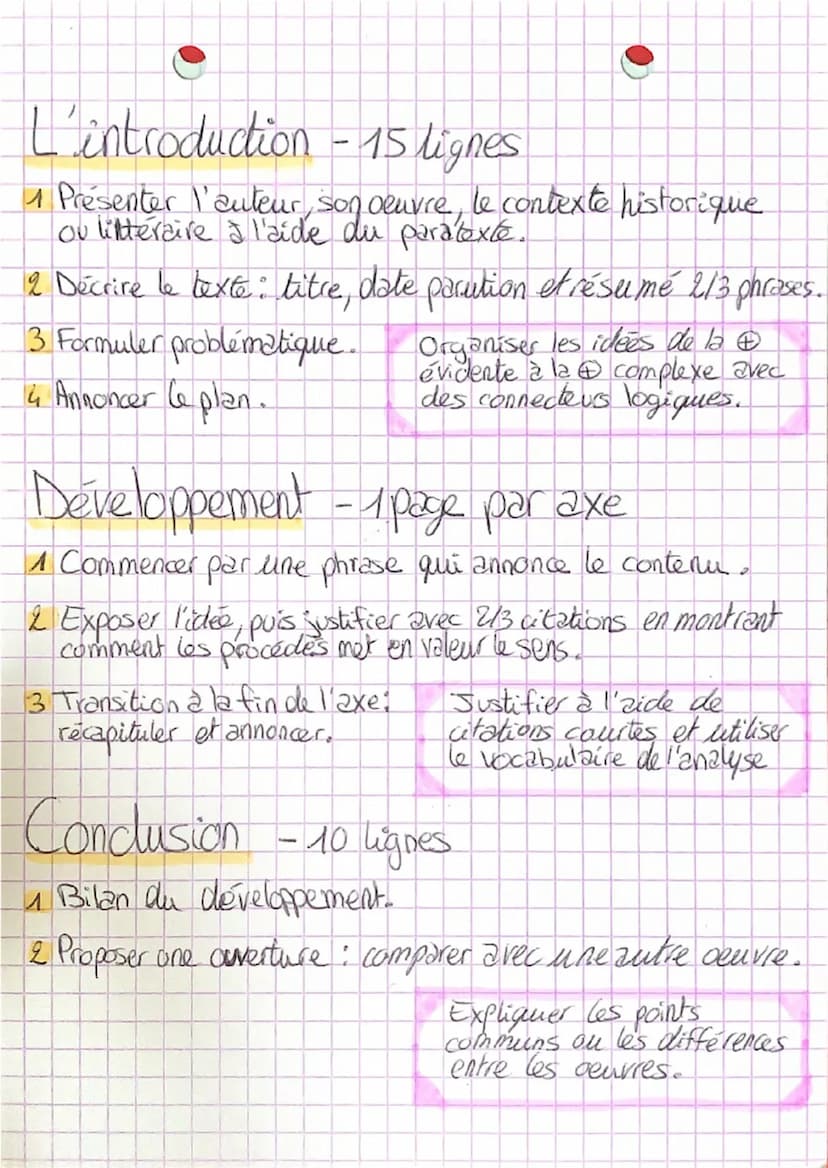 L'introduction - 15 lignes
1 Présenter l'auteur, son oeuvre, le contexte historique
ou littéraire à l'aide du paratexte.
2 Décrire le texte : titre, date parution et résumé 2/3 phrases.
3 Formuler problématique.
4 Annoncer le plan.
Organiser les idées de la ⊕
évidente à la ⊕ complexe avec
des connecteurs logiques.
Développement - 1 page par axe
1 Commencer par une phrase qui annonce le contenu.
2 Exposer l'idée, puis justifier avec 2/3 citations en montrant
comment les procédés met en valeur le sens.
3 Transition à la fin de l'axe :
récapituler et annoncer.
Justifier à l'aide de
citations courtes et utiliser
le vocabulaire de l'analyse
Conclusion - 10 lignes
1 Bilan du développement.
2 Proposer une ouverture : comparer avec une autre oeuvre.
Expliquer les points
communs ou les différences
entre les oeuvres.